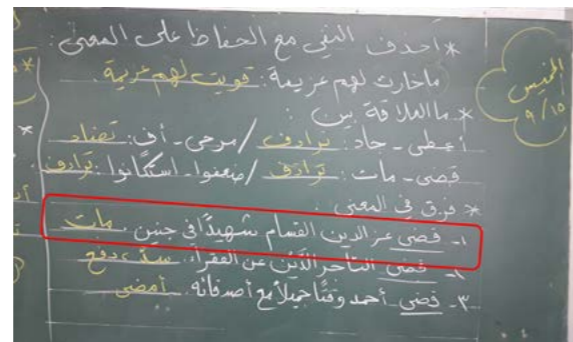 الخميس
٩/١٥
* احذف النفي مع الحفاظ على المعنى:
ماخارت لهم عزيمة: قويت لهم عزيمة.
* ما العلاقة بين:
أعطى - جاد: ترادف / مرحى - أف: تضاد
قضى - مات: ترادف / ضعفوا - استكانوا: ترادف.
* فرق في المعنى:
١- قضى عز الدين القسام شهيدًا في جنين. مات
٢- قضى التاجر الدَّين عن الفقراء. سدَّ، دفع
٣- قضى أحمد وقتًا جميلاً مع أصدقائه. أمضى